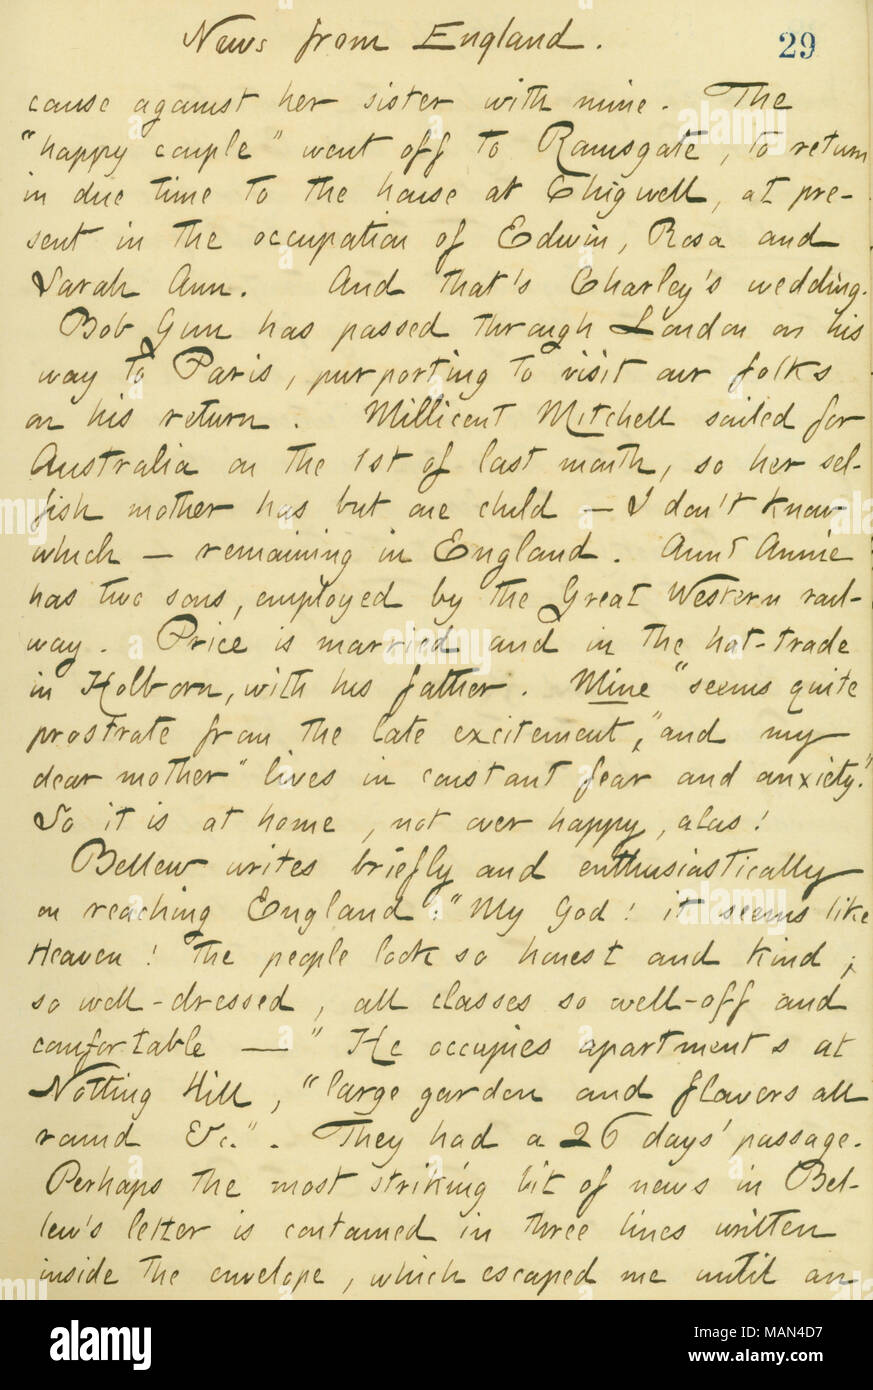 News from England.
29
cause against her sister with mine. The
"happy couple" went off to Ramsgate, to return
in due time to the house at Chigwell, at pre-
sent in the occupation of Edwin, Rosa and
Sarah Ann. And that's Charley's wedding.
Bob Gun has passed through London on his
way to Paris, purporting to visit our folks
on his return. Millicent Mitchell sailed for
Australia on the 1st of last month, so her sel-
fish mother has but one child — I don't know
which — remaining in England. Aunt Annie
has two sons, employed by the Great Western rail-
way. Price is married and in the hat-trade
in Holborn, with his father. Mine "seems quite
prostrate from the late excitement," and my
dear mother "lives in constant fear and anxiety."
So it is at home, not over happy, alas!
Bellew writes briefly and enthusiastically
on reaching England: "My God! it seems like
Heaven! The people look so honest and kind,
so well-dressed, all classes so well-off and
comfortable —" He occupies apartments at
Notting Hill, "large garden and flowers all
round &c.". They had a 26 days' passage.
Perhaps the most striking bit of news in Bel-
lew's letter is contained in three lines written
inside the envelope, which escaped me until an
alamy
Image ID: MAN4D7
www.alamy.com